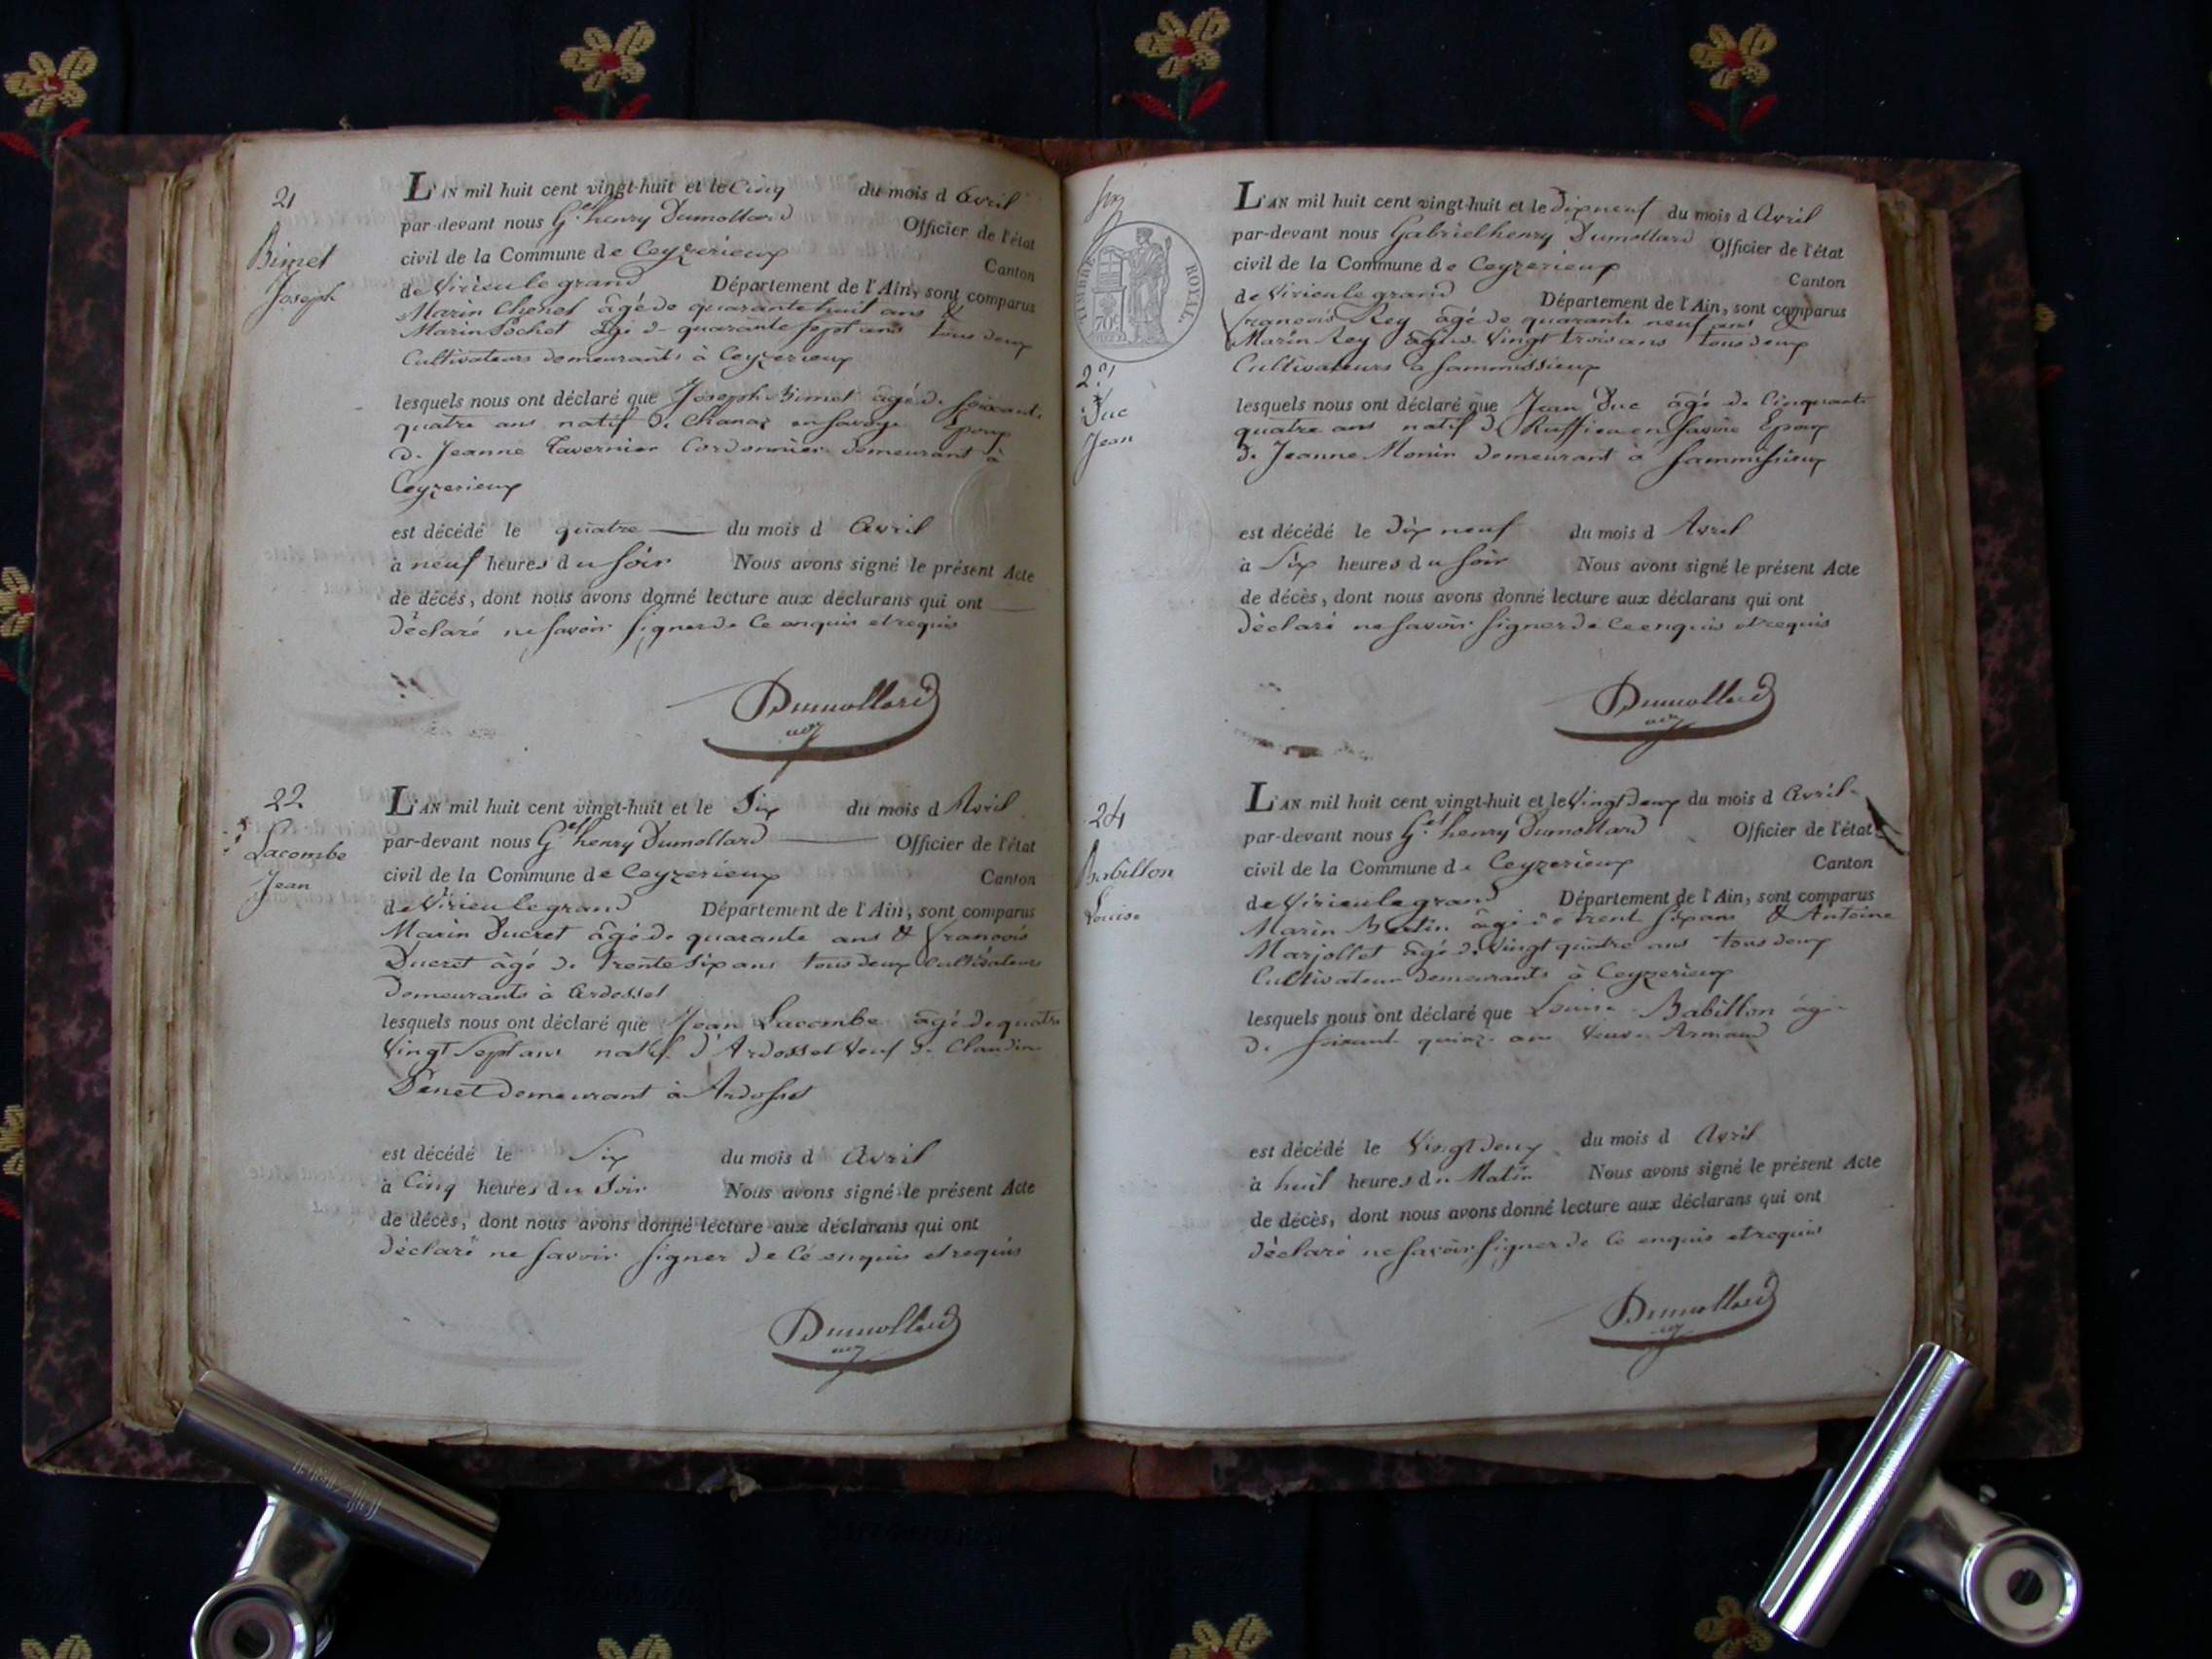 21
Bimet
Joseph
L'AN mil huit cent vingt-huit et le Cinq du mois d Avril
par-devant nous G.el henry Dumollard Officier de l'état
civil de la Commune de Ceyzerieux Canton
de Virieu le grand Département de l'Ain, sont comparus
Marin Chenet âgé de quarante huit ans &
Marin Pochet âgé de quarante sept ans tous deux
Cultivateurs demeurants à Ceyzerieux
lesquels nous ont déclaré que Joseph Bimet âgé de soixante
quatre ans natif de Chanaz en Savoye Epoux
de Jeanne Tavernier Cordonnier demeurant à
Ceyzerieux
est décédé le quatre du mois d Avril
à neuf heures du soir Nous avons signé le présent Acte
de décès, dont nous avons donné lecture aux déclarans qui ont
déclaré ne savoir signer de ce enquis et requis
Dumollard
22
Lacombe
Jean
L'AN mil huit cent vingt-huit et le Six du mois d Avril
par-devant nous G.el henry Dumollard Officier de l'état
civil de la Commune de Ceyzerieux Canton
de Virieu le grand Département de l'Ain, sont comparus
Marin Ducret âgé de quarante ans & François
Ducret âgé de trente six ans tous deux Cultivateurs
demeurants à Ardosset
lesquels nous ont déclaré que Jean Lacombe âgé de quatre
Vingt Sept ans natif d'Ardosset Veuf de Claudine
demeurant à Ardosset
est décédé le Six du mois d Avril
à Cinq heures du Soir Nous avons signé le présent Acte
de décès, dont nous avons donné lecture aux déclarans qui ont
déclaré ne savoir signer de ce enquis et requis
Dumollard
TIMBRE ROYAL
70c
23
Duc
Jean
L'AN mil huit cent vingt-huit et le dixneuf du mois d Avril
par-devant nous Gabriel henry Dumollard Officier de l'état
civil de la Commune de Ceyzerieux Canton
de Virieu le grand Département de l'Ain, sont comparus
François Rey âgé de quarante neuf ans &
Marin Rey âgé de Vingt trois ans tous deux
Cultivateurs à Sammissieux
lesquels nous ont déclaré que Jean Duc âgé de Cinquante
quatre ans natif de Ruffieu en Savoie Epoux
de Jeanne Monin demeurant à Sammissieux
est décédé le dix neuf du mois d Avril
à Six heures du soir Nous avons signé le présent Acte
de décès, dont nous avons donné lecture aux déclarans qui ont
déclaré ne savoir signer de ce enquis et requis
Dumollard
24
Babillon
Louise
L'AN mil huit cent vingt-huit et le Vingt deux du mois d Avril
par-devant nous G.el henry Dumollard Officier de l'état
civil de la Commune de Ceyzerieux Canton
de Virieu le grand Département de l'Ain, sont comparus
Marin âgé de trent six ans & Antoine
Marjollet âgé de Vingt quatre ans tous deux
Cultivateur demeurants à Ceyzerieux
lesquels nous ont déclaré que Louise Babillon âgé
de soixante quinze ans Veuve Armand
est décédé le Vingt deux du mois d Avril
à huit heures du Matin Nous avons signé le présent Acte
de décès, dont nous avons donné lecture aux déclarans qui ont
déclaré ne savoir signer de ce enquis et requis
Dumollard